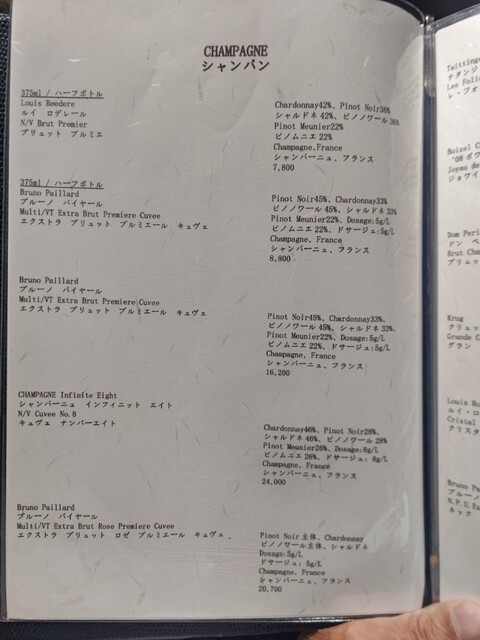 CHAMPAGNE
シャンパン
375ml / ハーフボトル
Louis Røedere
ルイ ロデレール
N/V Brut Premier
ブリュット プルミエ
Chardonnay42%, Pinot Noir36%
シャルドネ 42%, ピノノワール 36%
Pinot Meunier22%
ピノムニエ 22%
Champagne,France
シャンパーニュ, フランス
7,800
375ml / ハーフボトル
Bruno Paillard
ブルーノ パイヤール
Multi/VT Extra Brut Premiere Cuvee
エクストラ ブリュット プルミエール キュヴェ
Pinot Noir45%, Chardonnay33%
ピノノワール 45%, シャルドネ 33%
Pinot Meunier22%, Dosage:5g/L
ピノムニエ 22%, ドサージュ:5g/L
Champagne, France
シャンパーニュ, フランス
8,800
Bruno Paillard
ブルーノ パイヤール
Multi/VT Extra Brut Premiere Cuvee
エクストラ ブリュット プルミエール キュヴェ
Pinot Noir45%, Chardonnay33%,
ピノノワール 45%, シャルドネ 33%,
Pinot Meunier22%, Dosage:5g/L
ピノムニエ 22%, ドサージュ:5g/L
Champagne, France
シャンパーニュ, フランス
16,200
CHAMPAGNE Infinite Eight
シャンパーニュ インフィニット エイト
N/V Cuvee No.8
キュヴェ ナンバーエイト
Chardonnay46%, Pinot Noir28%,
シャルドネ 46%, ピノノワール 28%
Pinot Meunier26%, Dosage:8g/L
ピノムニエ 26%, ドサージュ: 8g/L
Champagne, France
シャンパーニュ, フランス
24,000
Bruno Paillard
ブルーノ パイヤール
Multi/VT Extra Brut Rose Premiere Cuvee
エクストラ ブリュット ロゼ プルミエール キュヴェ
Pinot Noir主体, Chardonnay
ピノノワール主体, シャルドネ
Dosage:5g/L
ドサージュ: 5g/L
Champagne, France
シャンパーニュ, フランス
20,700
Taittinge
テタンジ
Les Folie
レ・フォ
Boizel C
'08 ボワ
Joyau de
ジョワイ
Dom Peri
ドン ペ
Brut Cha
ブリュッ
Krug
クリュッ
Grande C
グラン
Louis Ro
ルイ・ロ
Cristal
クリスタ
Bruno Pa
ブルーノ
N.P.U.Ex
ネック